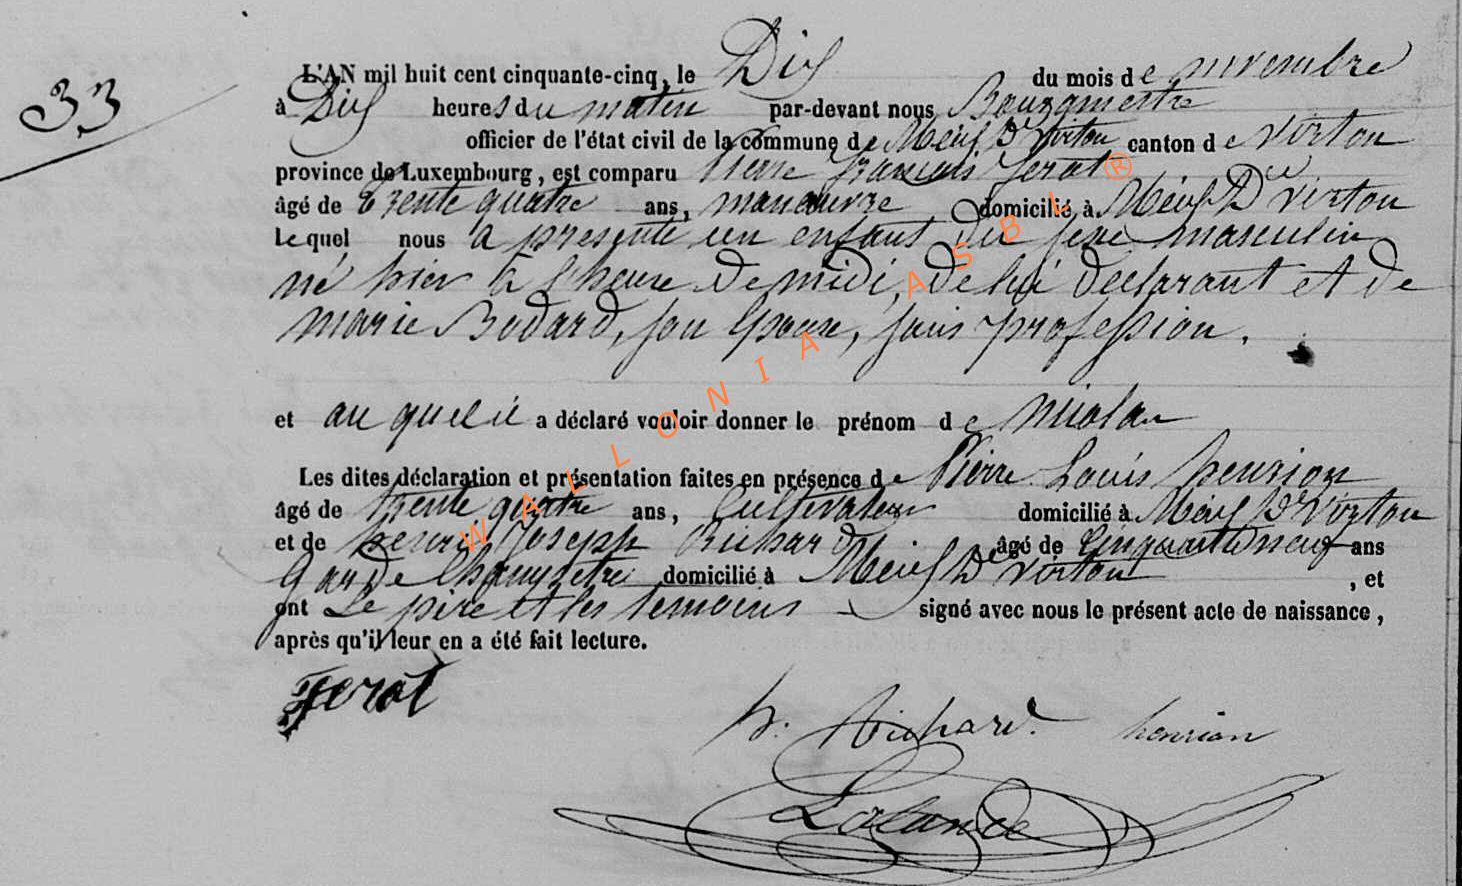 33
L'AN mil huit cent cinquante-cinq, le Dix du mois de novembre
à Dix heures du matin par-devant nous Bourgmestre
officier de l'état civil de la commune de Meix Dt Virton canton de Virton
province de Luxembourg, est comparu Pierre François Jerot
âgé de trente quatre ans, manœuvre domicilié à Meix Dt Virton
Lequel nous a présenté un enfant du sexe masculin
né hier à l'heure de midi, de lui déclarant et de
marie Bodard, son épouse, sans profession.
et au quel il a déclaré vouloir donner le prénom de Nicolas
Les dites déclaration et présentation faites en présence de Pierre Louis henrion
âgé de trente quatre ans, Cultivateur domicilié à Meix Dt Virton
et de henri Joseph Richard âgé de Cinquante neuf ans
Garde Champêtre domicilié à Meix Dt Virton, et
ont Le père et les témoins signé avec nous le présent acte de naissance,
après qu'il leur en a été fait lecture.
Jerot
h. Richard. henrion
Lalance
WALLONIA ASBL ®